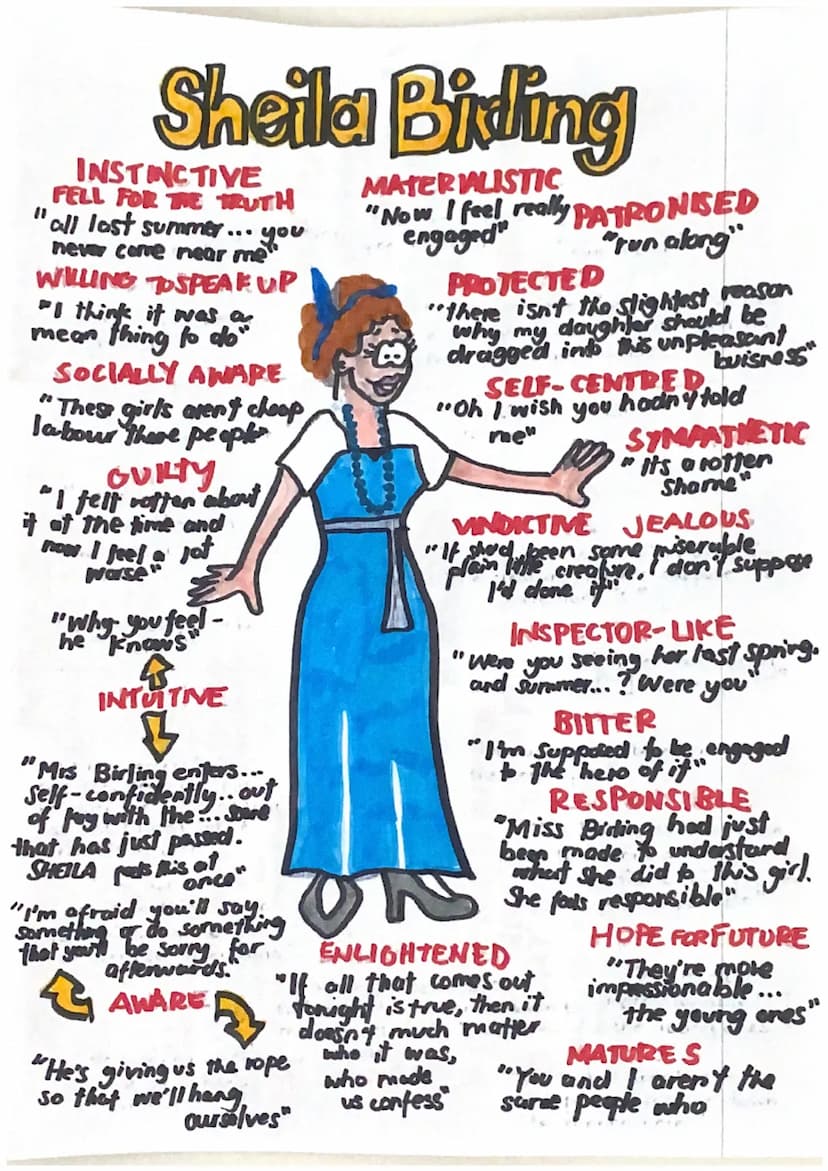 Sheila Birling
INSTINCTIVE
FELL FOR THE TRUTH
"all last summer... you
never came near me"
WILLING TO SPEAK UP
"I think it was a
mean thing to do"
SOCIALLY AWARE
"These girls aren't cheap
labour there people"
GUILTY
"I felt rotten about
it at the time and
now I feel a lot
worse"
"Why- you feel -
he knows"
INTUITIVE
"Mrs Birling enters...
self-confidently... out
of key with the...
that has just passed.
SHEILA feels this at
once"
"I'm afraid you'll say
something or do something
that you'll be sorry for
afterwards."
AWARE
"He's giving us the rope
so that we'll hang
ourselves"
MATERIALISTIC
"Now I feel really
engaged"
PATRONISED
"run along"
PROTECTED
"there isn't the slightest reason
why my daughter should be
dragged into this unpleasant
buisness"
SELF-CENTRED
"Oh I wish you hadn't told
me"
SYMPATHETIC
"Its a rotten
shame"
VINDICTIVE JEALOUS
"If she'd been some miserable
plain little creature, I don't suppose
I'd done it"
INSPECTOR-LIKE
"Were you seeing her last spring
and summer...? Were you"
BITTER
"I'm supposed to be engaged
to the hero of it"
RESPONSIBLE
"Miss Birling had just
been made to understand
what she did to this girl.
She feels responsible"
HOPE FOR FUTURE
"They're more
impressionable...
the young ones"
ENLIGHTENED
"If all that comes out
tonight is true, then it
doesn't much matter
who it was,
who made
us confess"
MATURES
"You and I aren't the
same people who